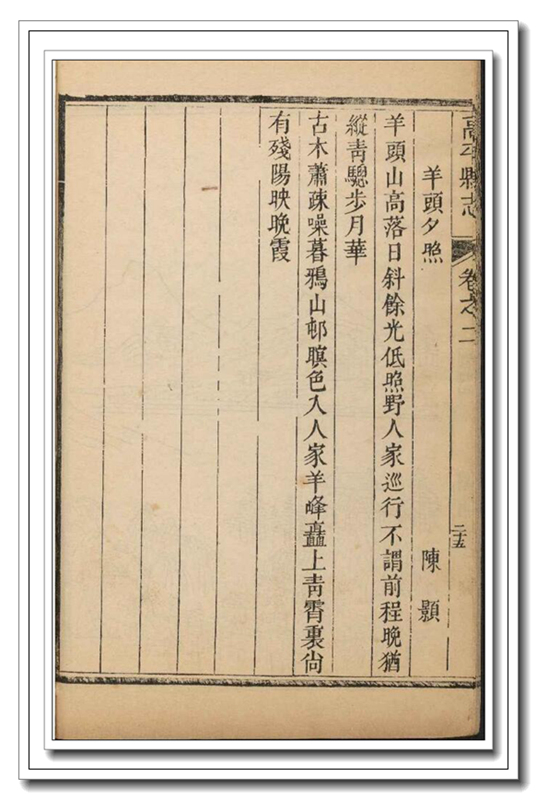 高平縣志
卷之二
二十五
羊頭夕照
陳顥
羊頭山高落日斜餘光低照野人家巡行不謂前程晚猶
縱靑驄步月華
古木蕭疎噪暮鴉山邨暝色入人家羊峰矗上靑霄裏尙
有殘陽映晚霞